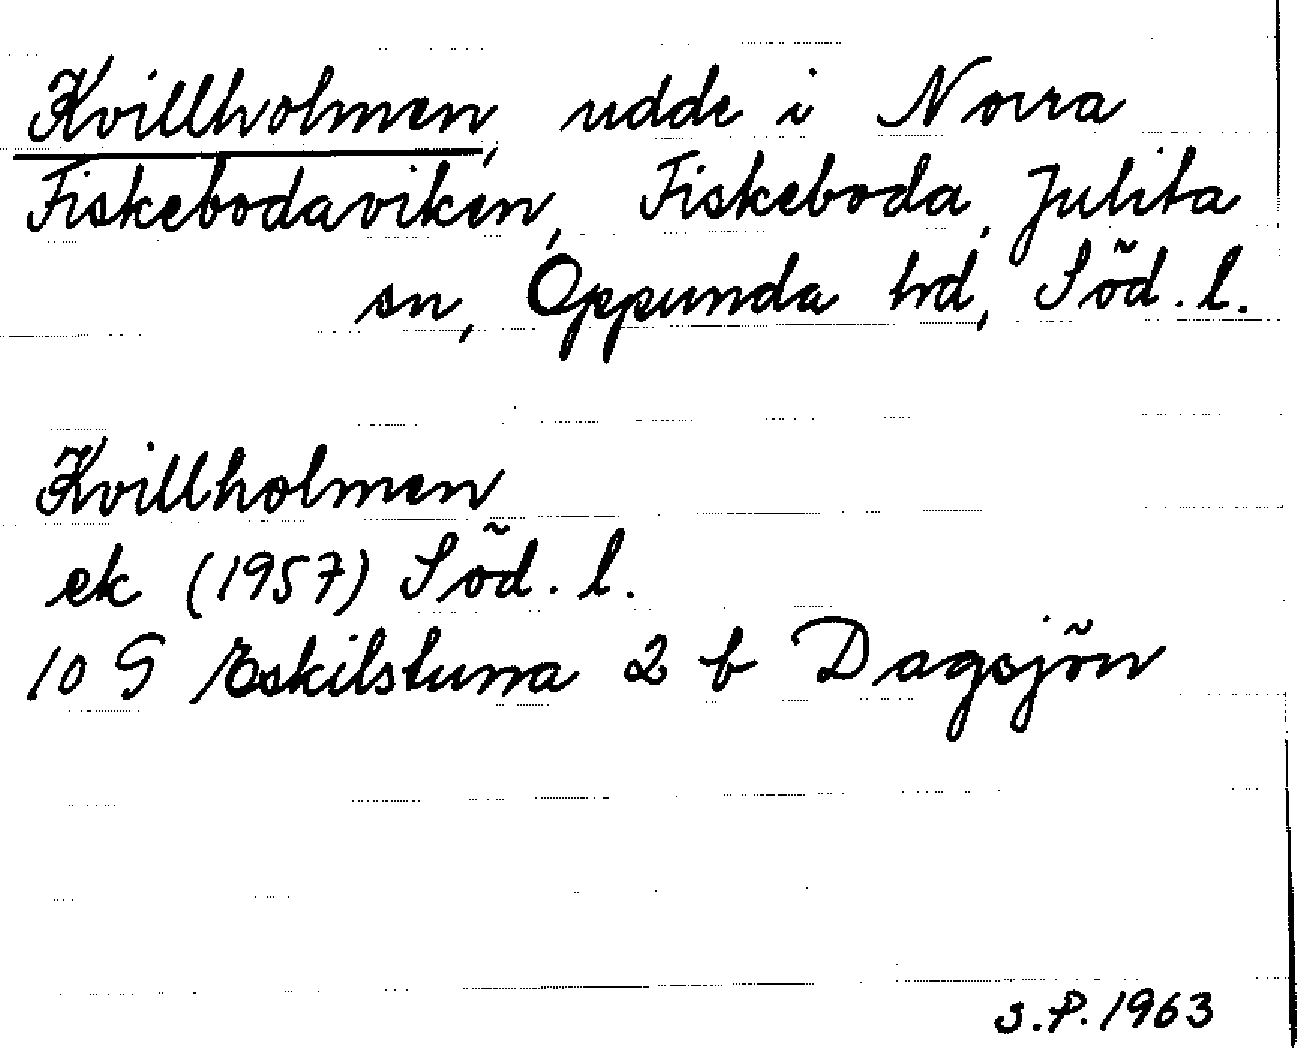 Kvillholmen, udde i Norra
Fiskebodaviken, Fiskeboda, Julita
sn, Oppunda hd, Söd. l.
Kvillholmen
ek (1957) Söd. l.
10 G Eskilstuna 2 b Dagsjön
S.P. 1963